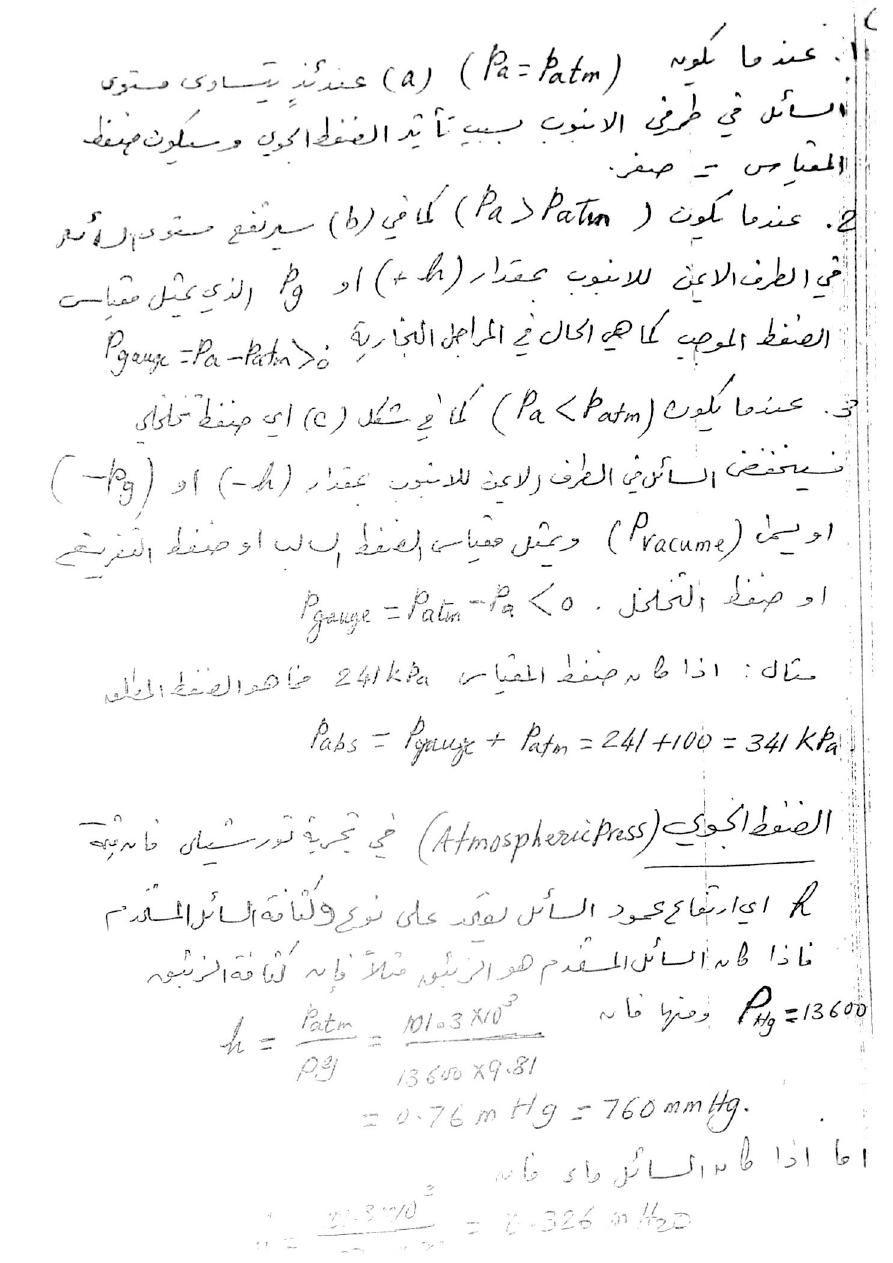 1. عندما يكون (Pa = Patm) (a) عندئذٍ يتساوى مستوى
السائل في طرفي الانبوب بسبب تأثير الضغط الجوي وسيكون ضغط
المقياس = صفر.
2. عندما يكون (Pa > Patm) كما في (b) سيرتفع مستوى السائل
في الطرف الايمن للانبوب بمقدار (+h) او Pg الذي يمثل مقياس
الضغط الموجب كما هي الحال في المراجل البخارية Pgauge = Pa - Patm > 0
3. عندما يكون (Pa < Patm) كما في شكل (c) اي ضغط تخلخلي
فسينخفض السائل في الطرف الايمن للانبوب بمقدار (-h) او (-Pg)
او يسمى (Pvacume) ويمثل مقياس الضغط السالب او ضغط التفريغ
او ضغط التخلخل. Pgauge = Patm - Pa < 0
مثال: اذا كان ضغط المقياس 241 kPa فما هو الضغط المطلق
Pabs = Pgauge + Patm = 241 + 100 = 341 kPa
الضغط الجوي (Atmospheric Press) في تجربة تورشيلي فان قيمة
h اي ارتفاع عمود السائل يعتمد على نوع وكثافة السائل المستخدم
فاذا كان السائل المستخدم هو الزئبق مثلاً فإن كثافة الزئبق
ρHg = 13600 ومنها فان
h = Patm / ρg = 101.3 × 10³ / 13600 × 9.81
= 0.76 m Hg = 760 mm Hg.
اما اذا كان السائل ماء فان
= .326 m H2O